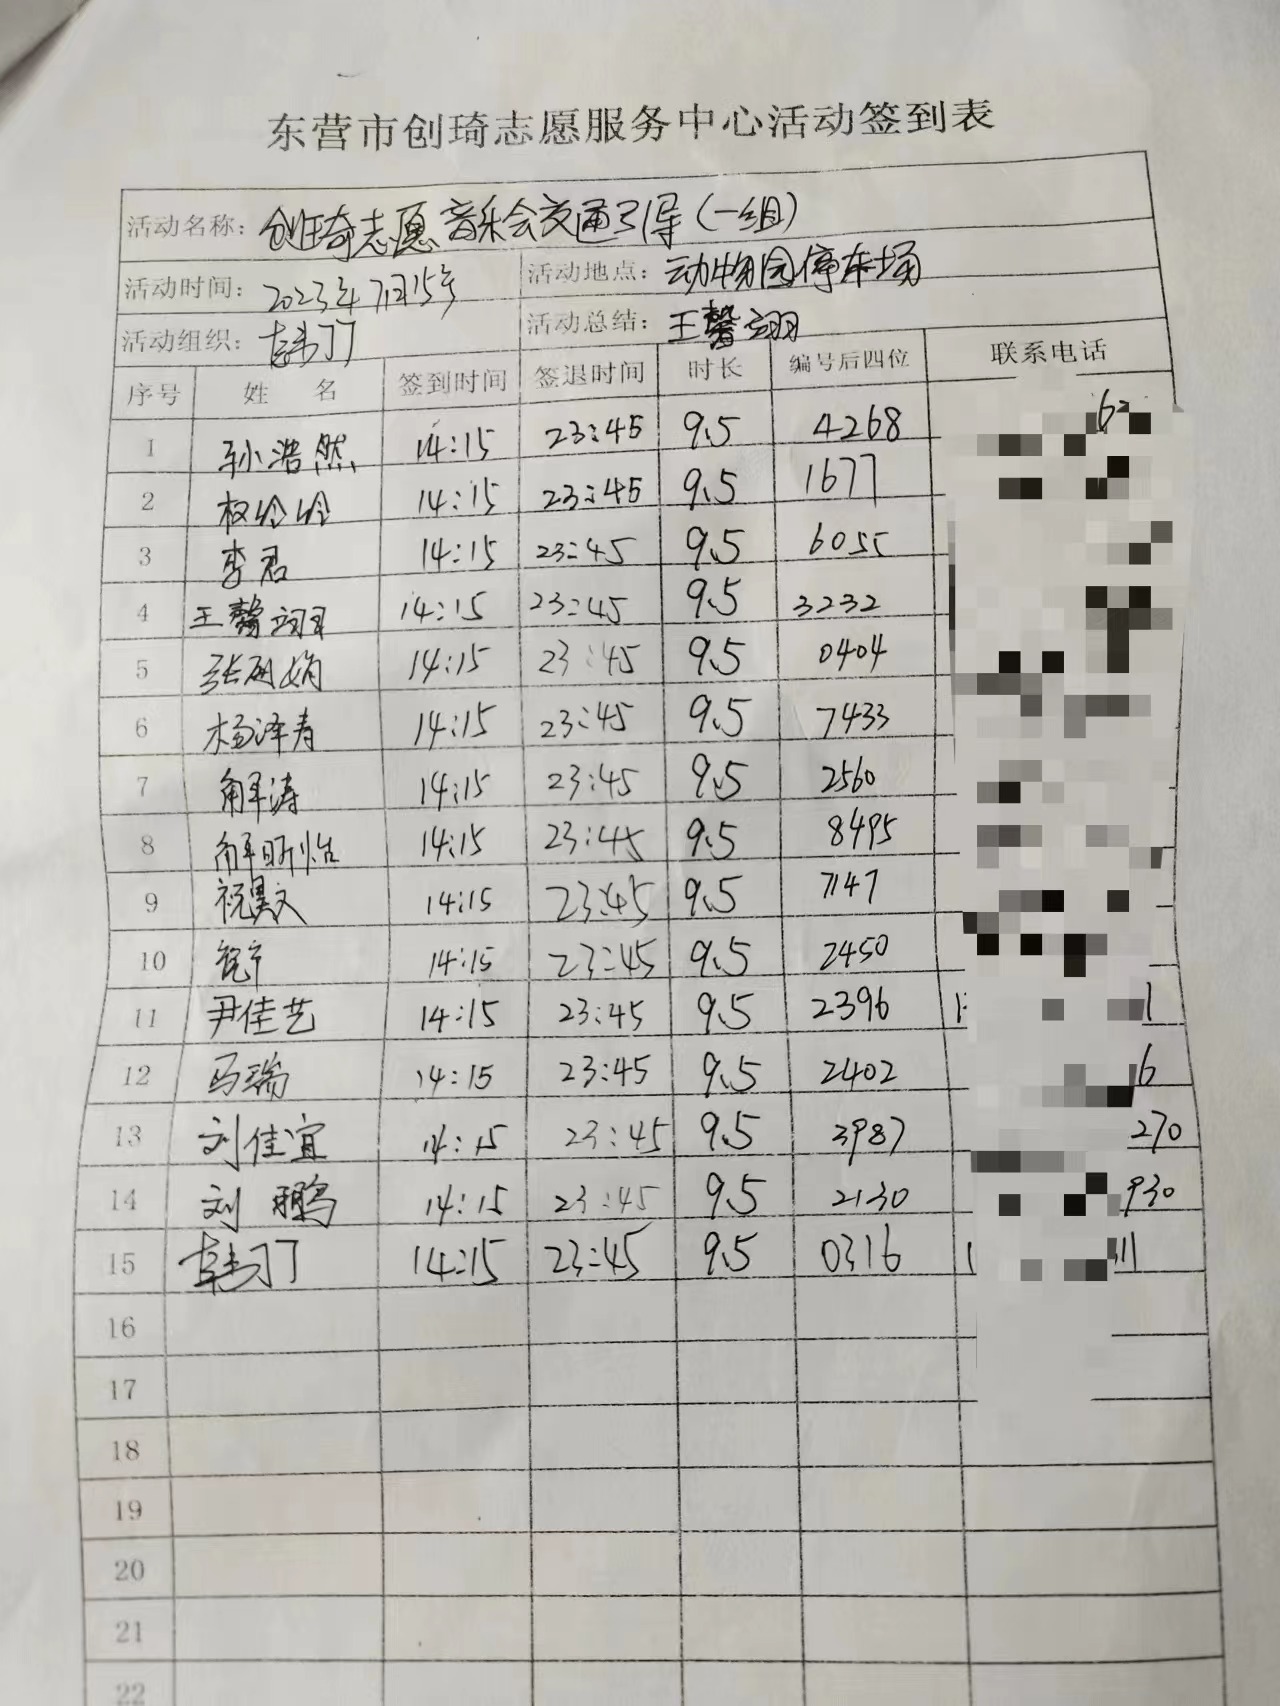 东营市创琦志愿服务中心活动签到表
活动名称: 创琦志愿音乐会交通引导(一组)
活动时间: 2023年7月15号 活动地点: 动物园停车场
活动组织: 韩丁丁 活动总结: 王馨翊
序号 姓 名 签到时间 签退时间 时长 编号后四位 联系电话
1 孙浩然 14:15 23:45 9.5 4268
2 权玲玲 14:15 23:45 9.5 1677
3 李君 14:15 23:45 9.5 6055
4 王馨翊 14:15 23:45 9.5 3232
5 张丽娟 14:15 23:45 9.5 0404
6 杨泽寿 14:15 23:45 9.5 7433
7 解涛 14:15 23:45 9.5 2560
8 解昕怡 14:15 23:45 9.5 8495
9 祝昊文 14:15 23:45 9.5 7147
10 14:15 23:45 9.5 2450
11 尹佳艺 14:15 23:45 9.5 2396 1
12 马瑞 14:15 23:45 9.5 2402 6
13 刘佳宜 14:15 23:45 9.5 3987 270
14 刘鹏 14:15 23:45 9.5 2130 930
15 韩丁丁 14:15 23:45 9.5 0316 1 11
16
17
18
19
20
21
22